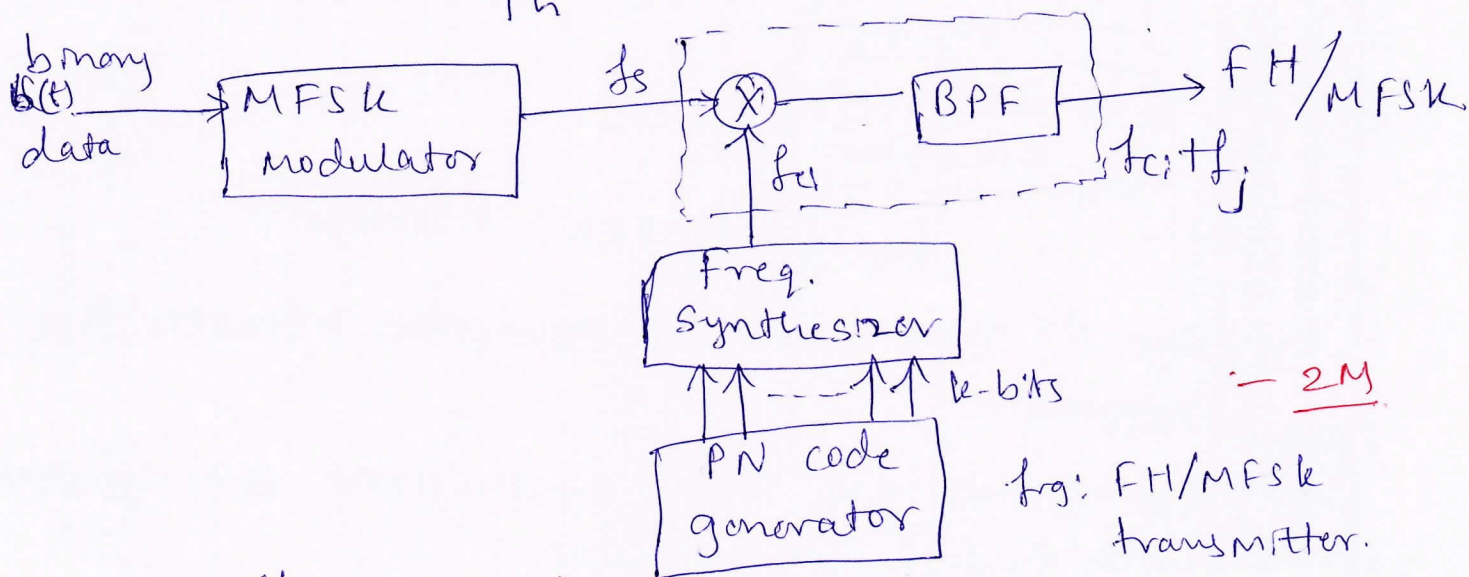 Th
binary
b(t)
data
MFSK
modulator
fs
X
BPF
FH/MFSK
fci+fj
fci
Freq.
synthesizer
k-bits
- 2M
PN code
generator
fig: FH/MFSK
transmitter.